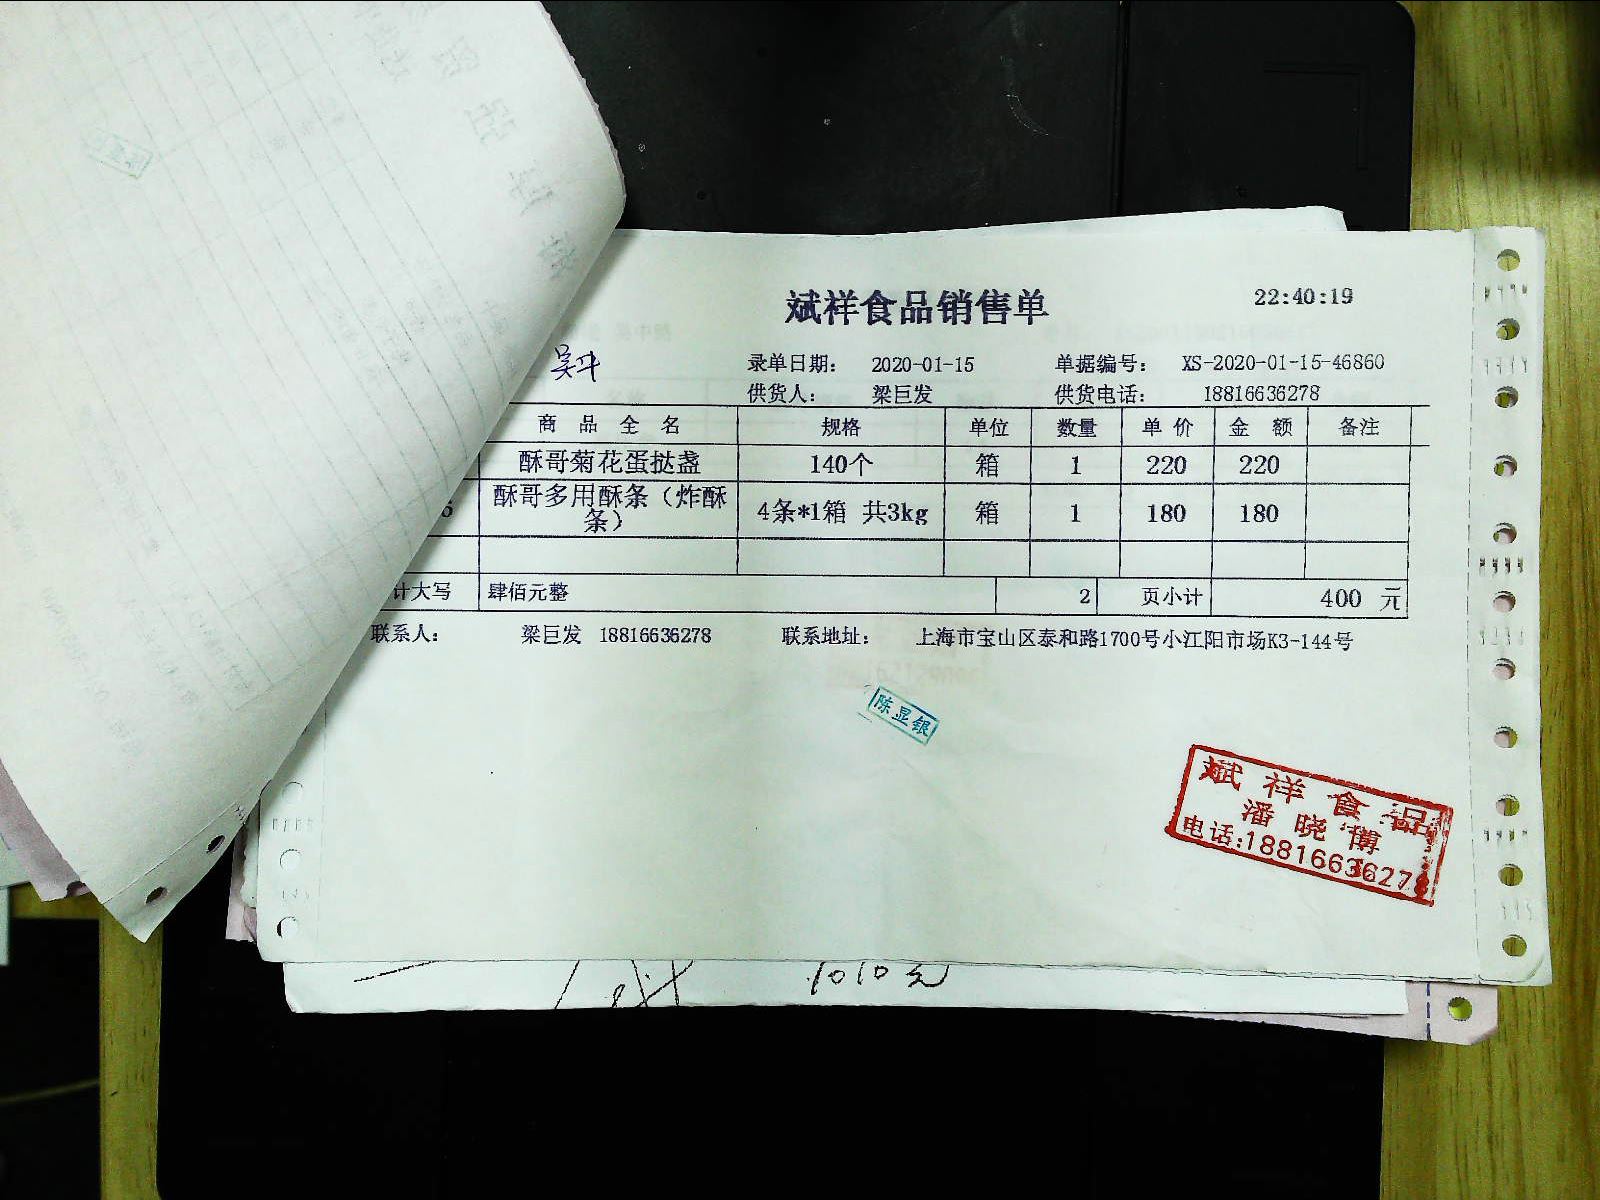 斌祥食品销售单 22:40:19
录单日期： 2020-01-15 单据编号： XS-2020-01-15-46860
供货人： 梁巨发 供货电话： 18816636278
商 品 全 名 规格 单位 数量 单 价 金 额 备注
酥哥菊花蛋挞盏 140个 箱 1 220 220
酥哥多用酥条（炸酥条） 4条*1箱 共3kg 箱 1 180 180
计大写 肆佰元整 2 页小计 400 元
联系人： 梁巨发 18816636278 联系地址： 上海市宝山区泰和路1700号小江阳市场K3-144号
陈显银
斌祥食品
潘晓博
电话:18816636278
1010元